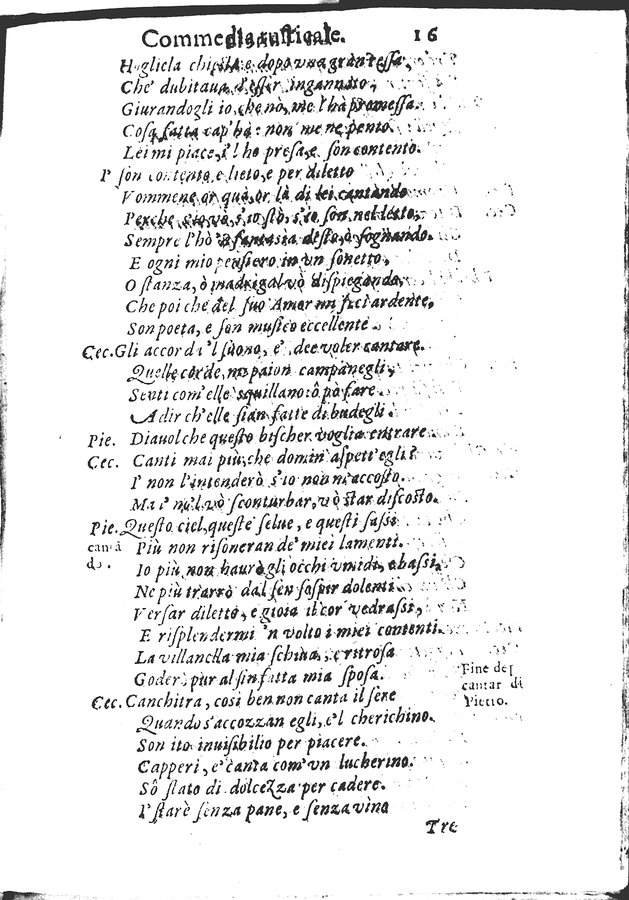 Commedia rusticale. 16
chiesta, e dopo vna gran ressa,
Che dubitaua d'esser ingannato,
Giurandogli io, che nò, me l'hà promessa.
Cosa fatta cap'hà: non me ne pento.
Lei mi piace, i' l'ho presa, e son contento.
I' son contento, e lieto, e per diletto
Vommene or quà, or là di lei cantando
Perche s'io vò, s'io stò, s'io son nel letto,
Sempre l'hò 'n fantasia desto, ò sognando.
E ogni mio pensiero in vn sonetto,
O stanza, ò madrigal vò dispiegando,
Che poiche del suo Amor mi feci ardente,
Son poeta, e son musico eccellente.
Cec. Gli accorda 'l suono, e' dee voler cantare.
Quelle corde, mi paion campanegli,
Senti com'elle squillano: ô pò fare
A dir ch'elle sian fatte di budegli.
Pie. Diauol che questo bischer voglia entrare
Cec. Canti mai più, che domin' aspett'egli?
I' non l'intenderò s'io non m'accosto.
Ma i' nol vò sconturbar, vò star discosto.
Pie. Questo ciel, queste selue, e questi sassi
cantã
do. Più non risoneran de' miei lamenti.
Io più non haurò gli occhi vmidi, e bassi,
Ne più trarrò dal sen sospir dolenti.
Versar diletto, e gioia il cor vedrassi,
E risplendermi 'n volto i miei contenti.
La villanella mia schiua, e ritrosa
Goder, pur al fin fatta mia sposa.
Fine del
cantar di
Pietro.
Cec. Canchitra, così ben non canta il sere
Quando s'accozzan egli, e'l cherichino.
Son ito inuisibilio per piacere.
Capperi, e' canta com'vn lucherino.
Sô stato di dolcezza per cadere.
I' starè senza pane, e senza vino
Tre